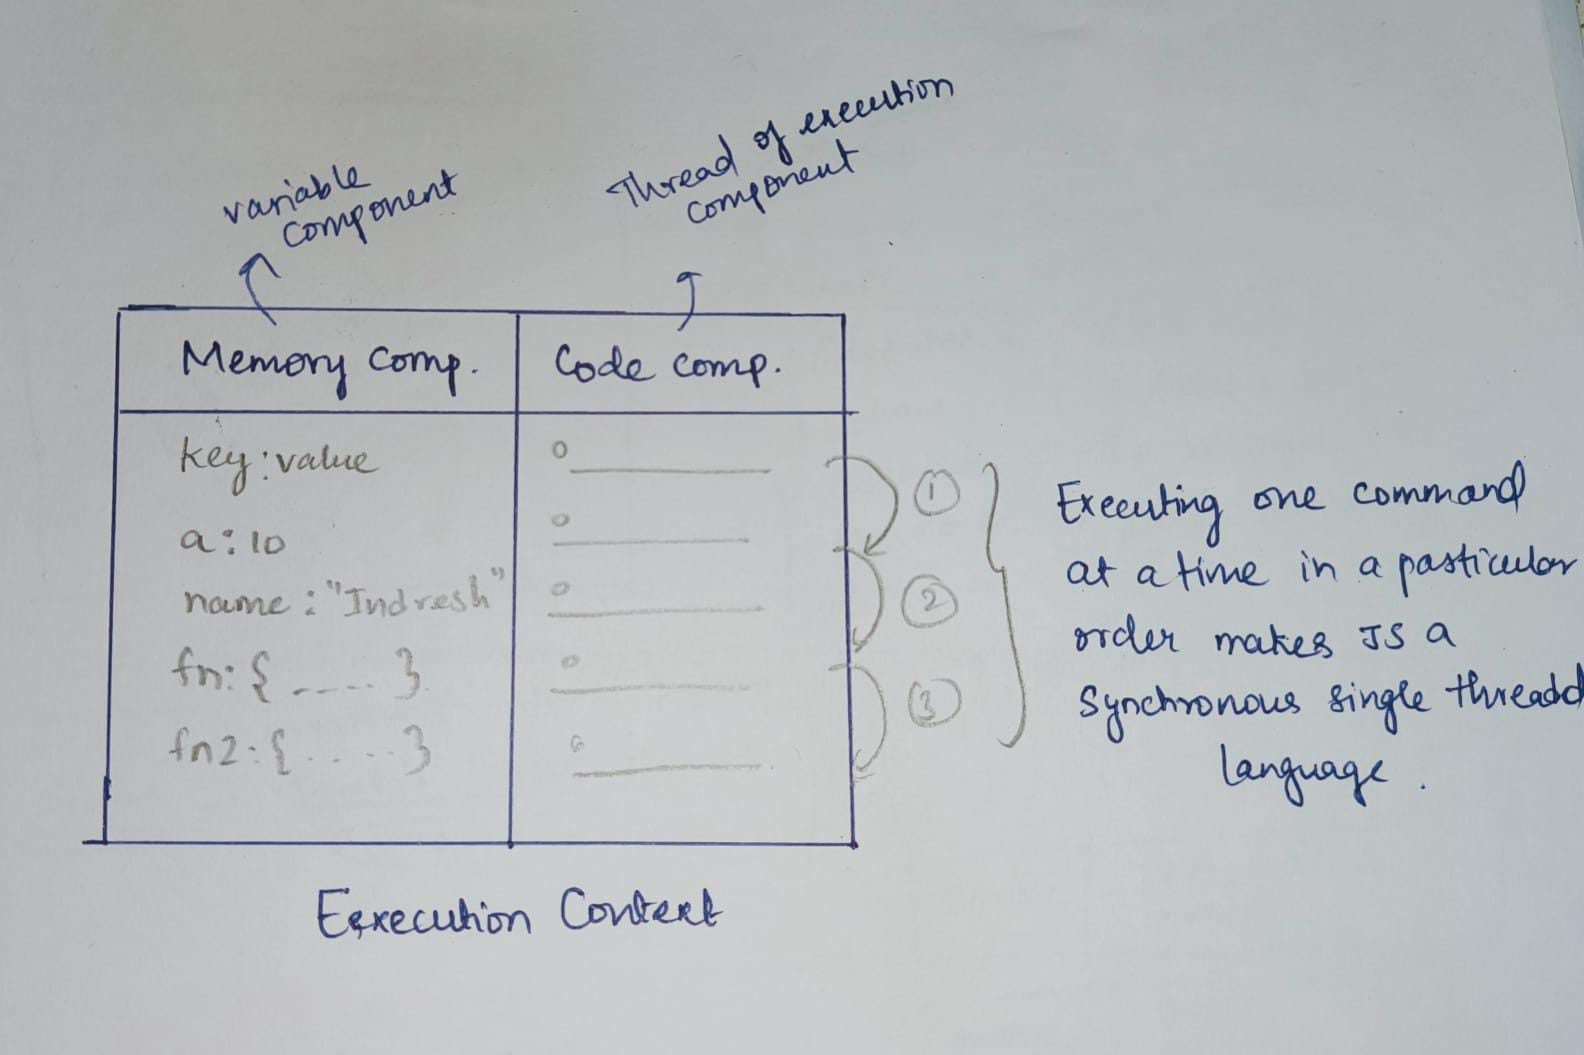 variable
component
Thread of execution
component
Memory comp.
Code comp.
key:value
a:10
name:"Indresh"
fn:{ ..... }
fn2:{ ..... }
①
②
③
Executing one command
at a time in a particular
order makes JS a
synchronous single threadd
language.
Exxecution Context